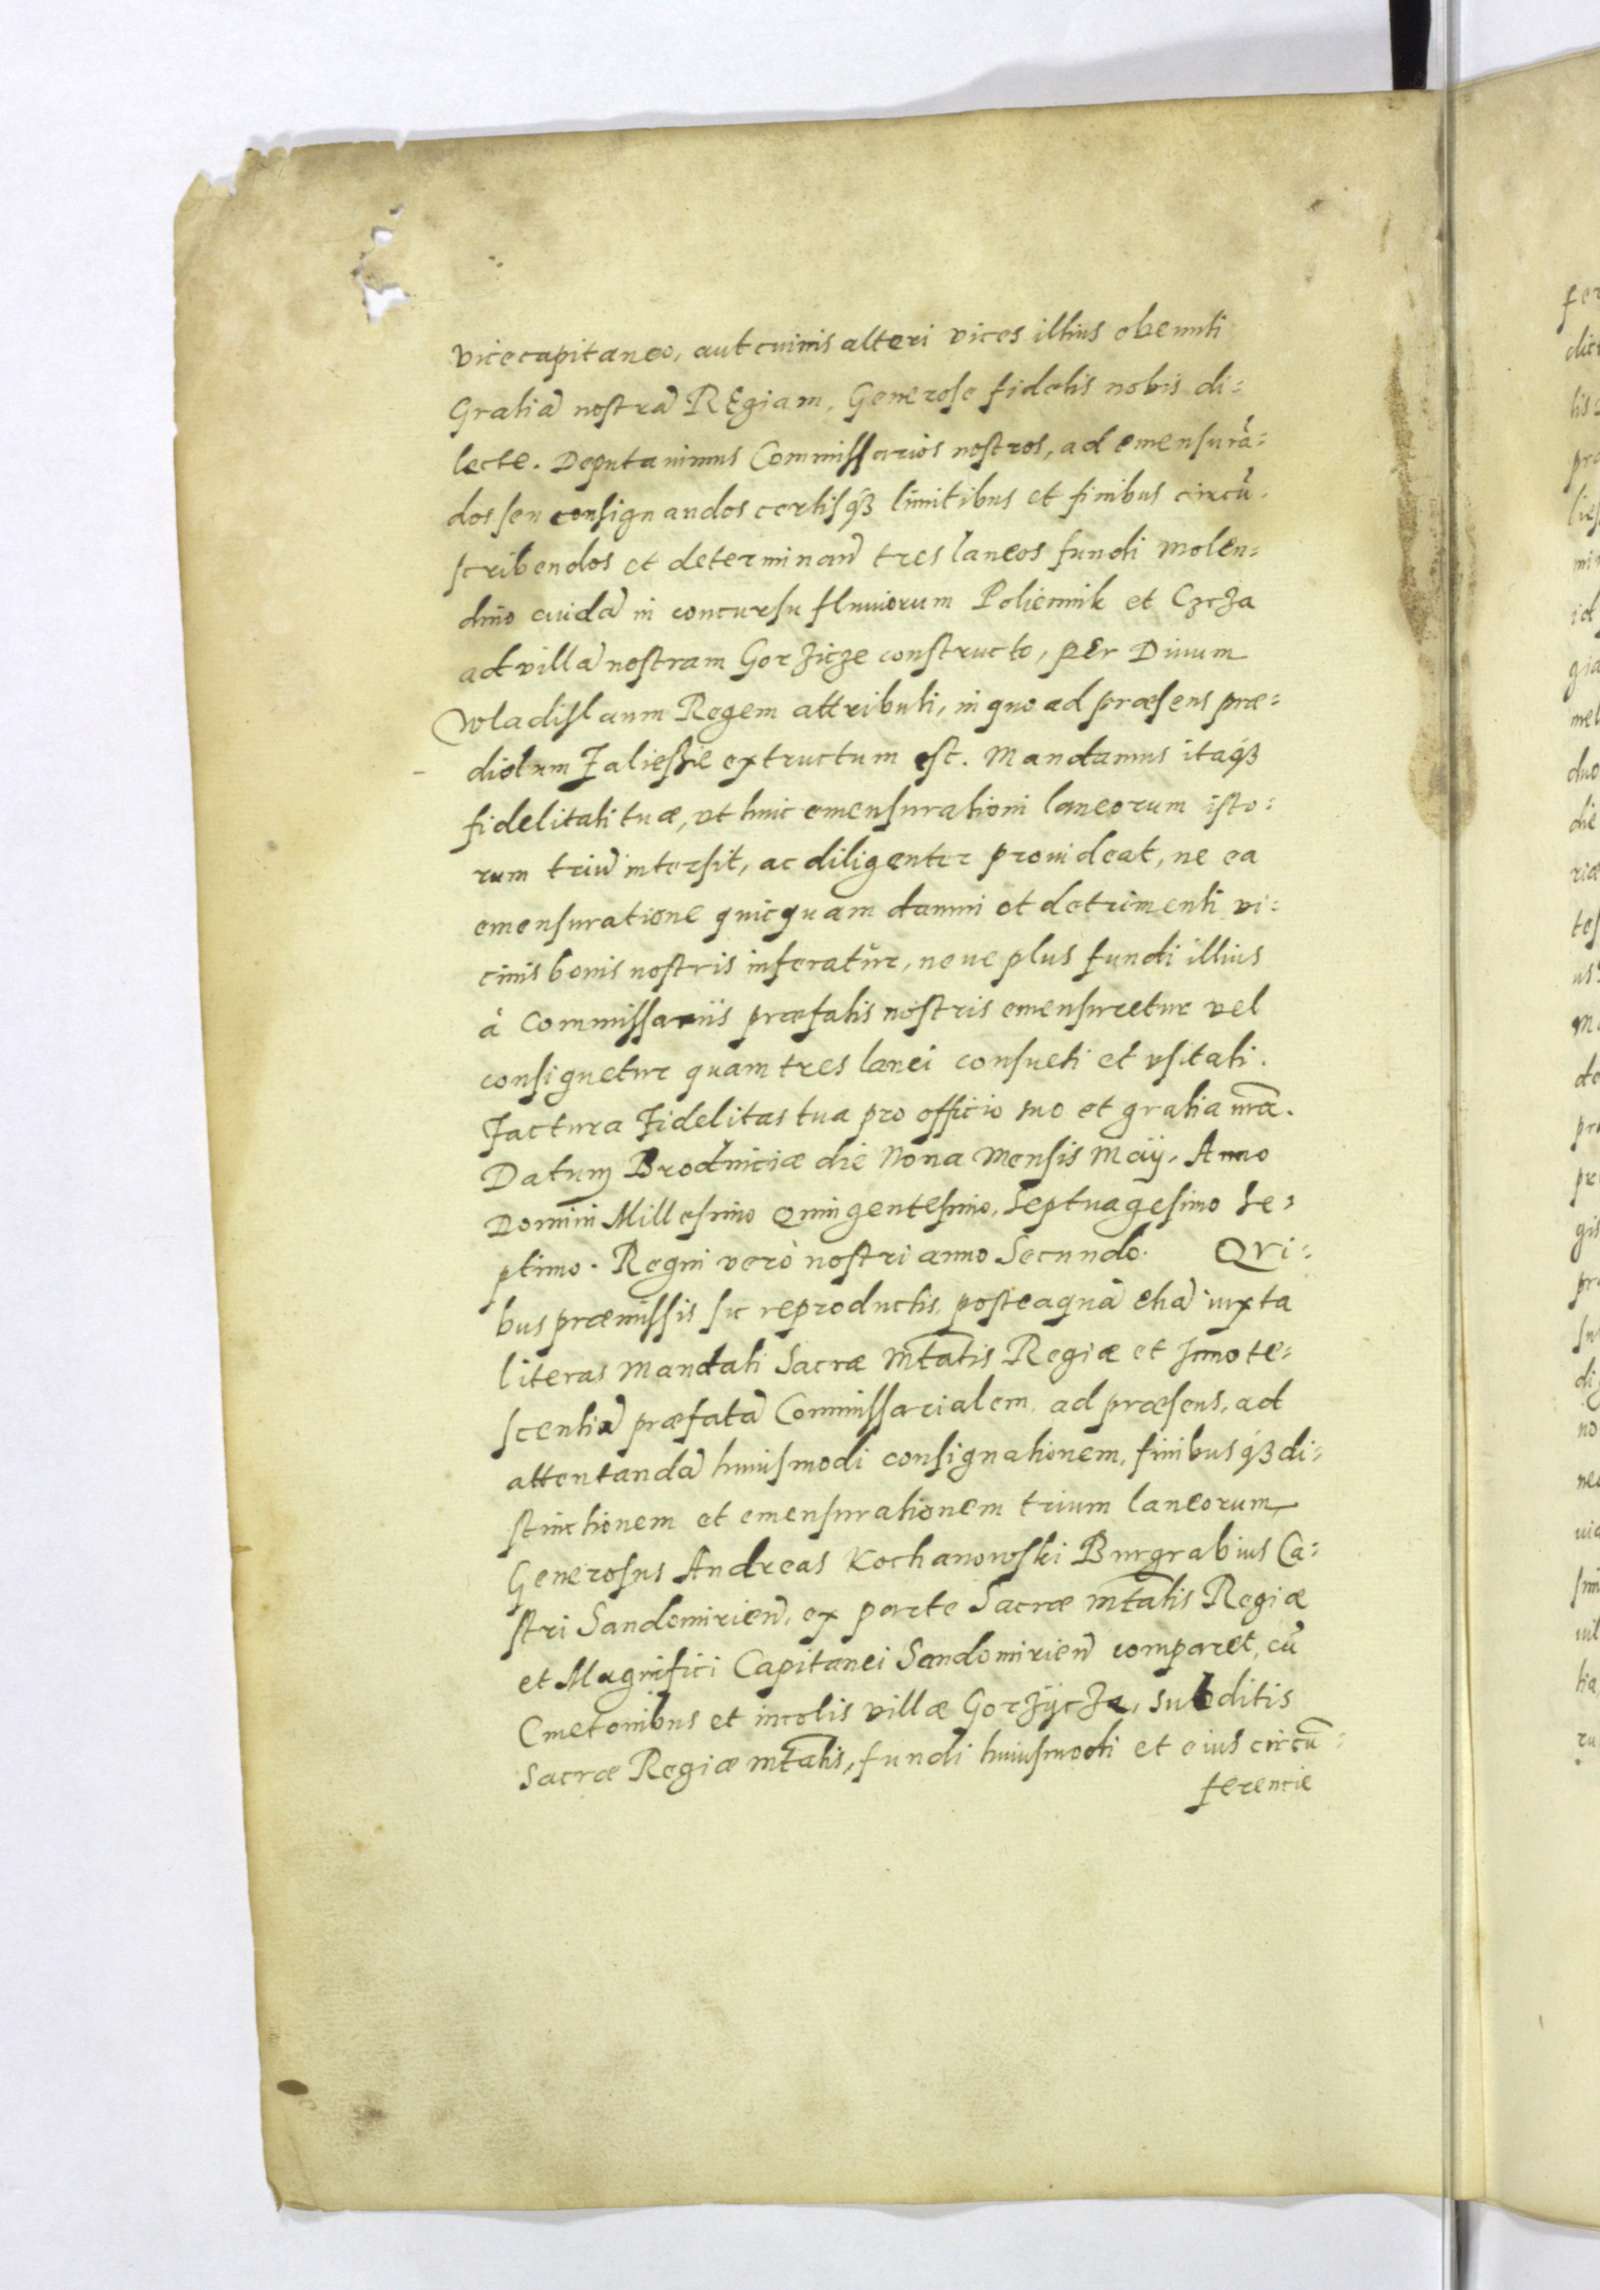 vicecapitaneo, aut cuivis alteri vices illius obeunti
Gratiã nostrã REgiam. Generose fidelis nobis di=
lecte. Deputavimus Commissarios nostros, ad emensurã=
dos seu consignandos certisq́ꝫ limitibus et finibus circũ=
scribendos et determinan̄ tres laneos fundi molen=
dino cuidã in concursu fluviorum Poliennik et
ad villã nostram Gorzicze constructo, pEr Divum
Wladislaum Regem attributi, in quo ad præsens præ=
diolum Zaliessie extructum est. Mandamus itaq́ꝫ
fidelitati tuæ, vt huic emensurationi laneorum isto=
rum triũ intersit, ac diligenter provideat, ne ea
emensuratione quicquam damni et detrimenti vi=
cinis bonis nostris inferatur, neve plus fundi illius
à Commissariis præfatis nostris emensuretur vel
consignetur quam tres lanei consueti et vsitati.
Factura Fidelitas tua pro officio suo et gratia nr̃a.
Datum Brodniciæ die Nona mensis Maÿ, Anno
Domini Millesimo Quingentesimo, Septuagesimo Se=
ptimo. Regni verò nostri anno Secundo. QVi=
bus præmissis sic reproductis, posteaquã etiã iuxta
literas mandati Sacræ Mt̃atis Regiæ et Innote=
scentiã præfatã Commissarialem, ad præsens, ad
attentandã huiusmodi consignationem, finibusq́ꝫ di=
stinctionem et emensurationem trium laneorum
Generosus Andreas Kochanowski Burgrabius Ca=
stri Sandomirien̄, ex parte Sacræ Mt̃atis Regiæ
et Magnifici Capitanei Sandomirien̄ comparet, cũ
Cmetonibus et incolis villæ Gorzÿcze, subditis
Sacræ Regiæ Mt̃atis, fundi huiusmodi et eius circũ=
ferencie